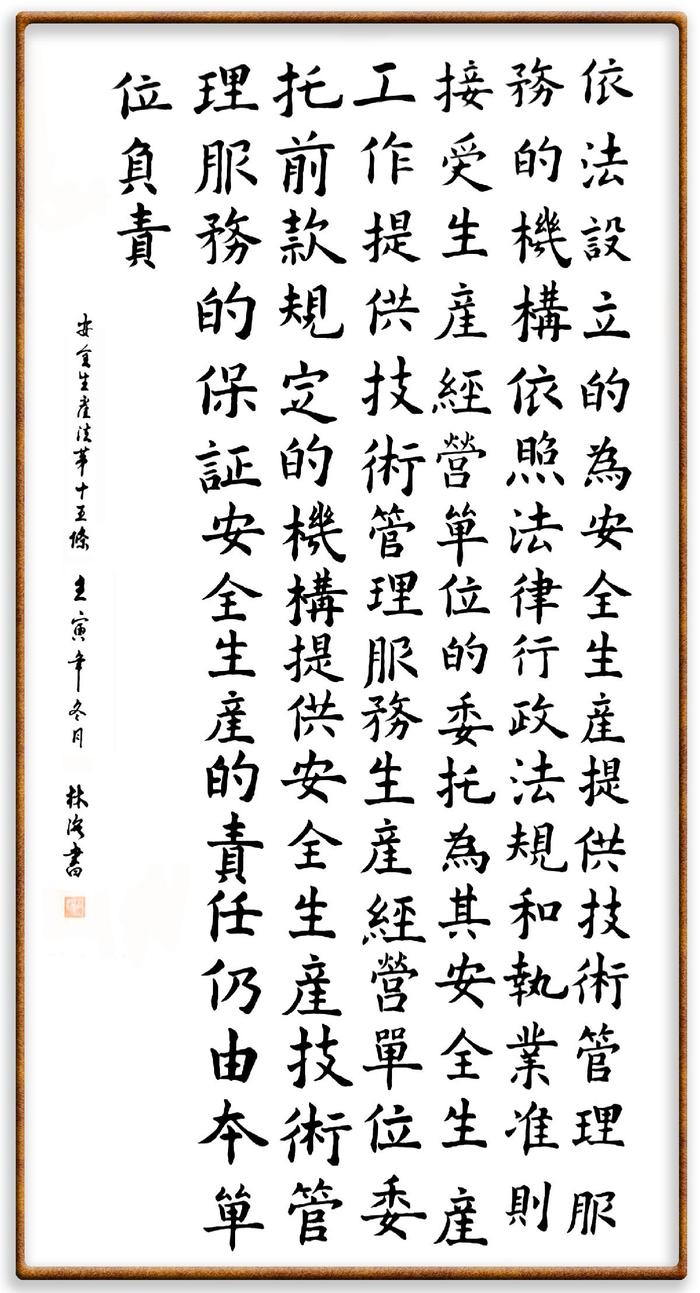 依法設立的為安全生産提供技術管理服
務的機構依照法律行政法規和執業准則
接受生産經營単位的委托為其安全生産
工作提供技術管理服務生産經營單位委
托前款規定的機構提供安全生産技術管
理服務的保証安全生産的責任仍由本単
位負責
安全生産法第十五條 壬寅年冬月 林洛書